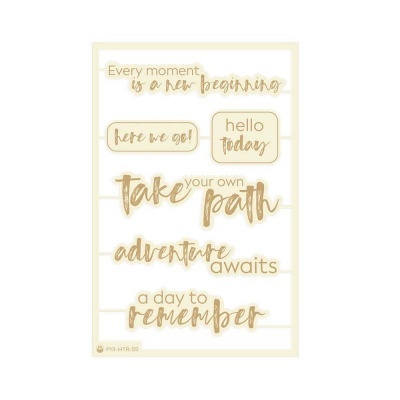 Every moment
is a new beginning
here we go!
hello
today
take your own
path
adventure
awaits
a day to
remember